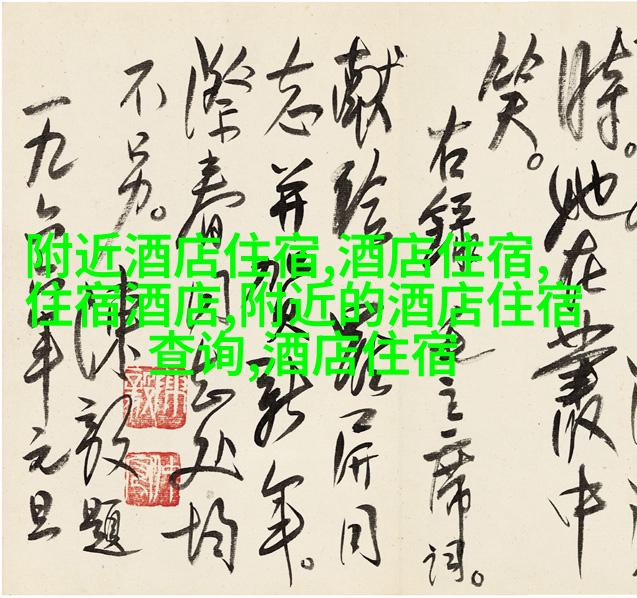 附近酒店住宿,酒店住宿,
住宿酒店,附近的酒店住宿
查询,酒店住宿
時。她在叢中
笑。
右錄毛主席词。
献给屏同
志并賀新年。
際春同志处均
不另。
陳毅題
一九六年元旦
陳毅